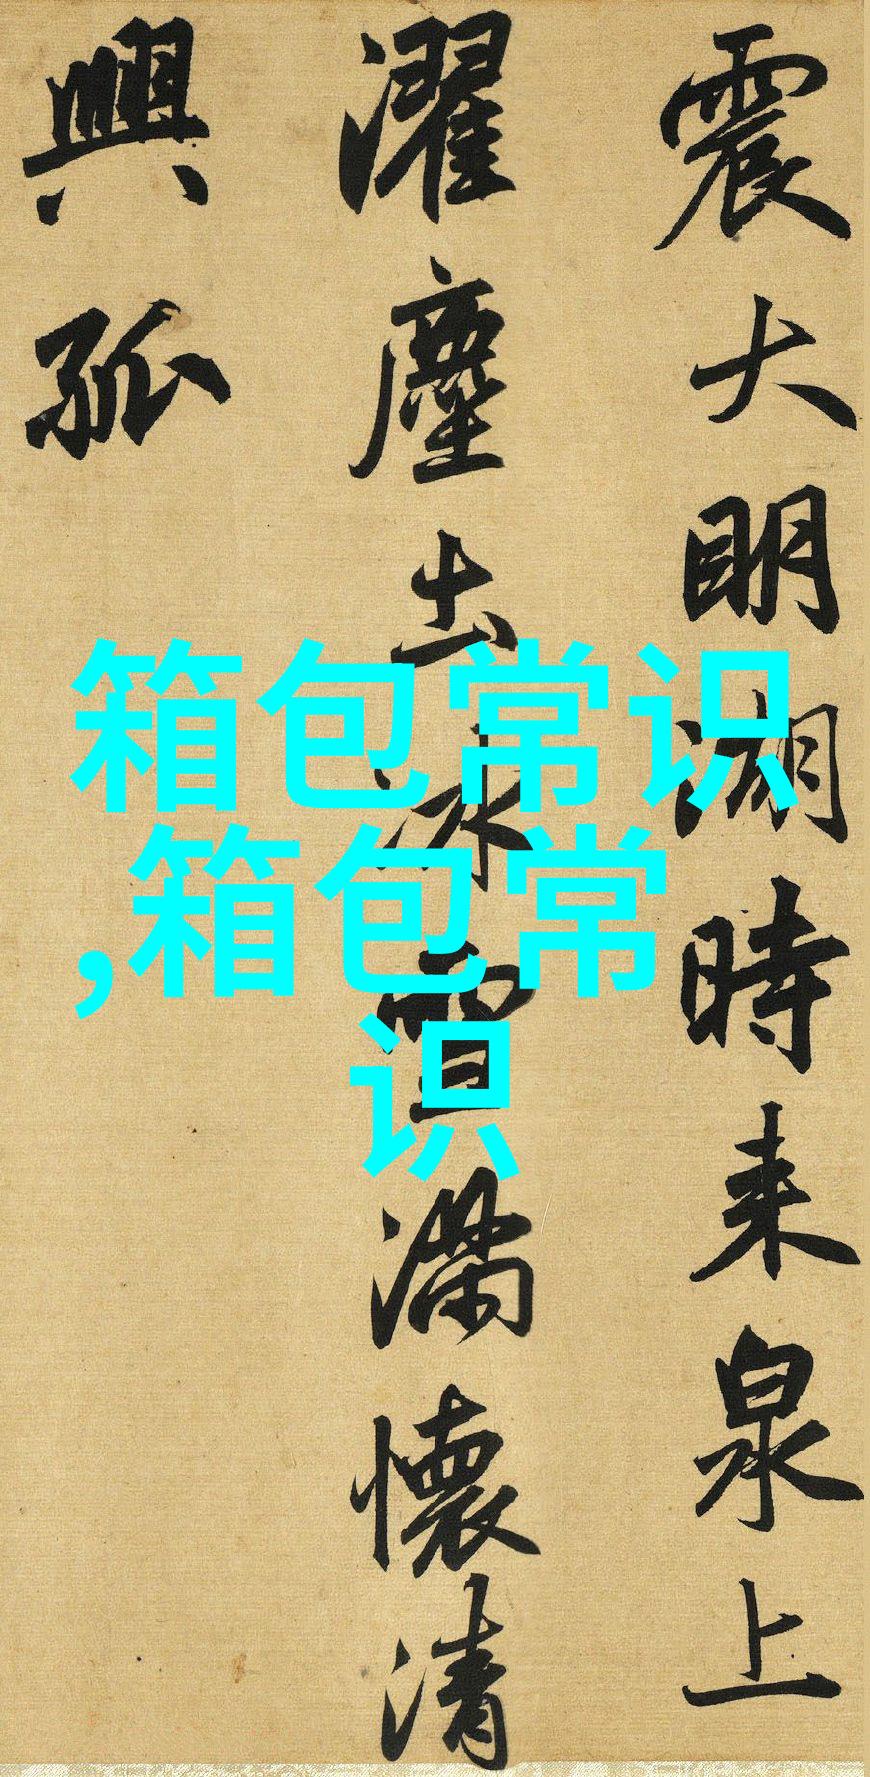 震大明湖時来泉上
濯塵土冰雪滿懷清
興孤
箱包常识
,箱包常
识